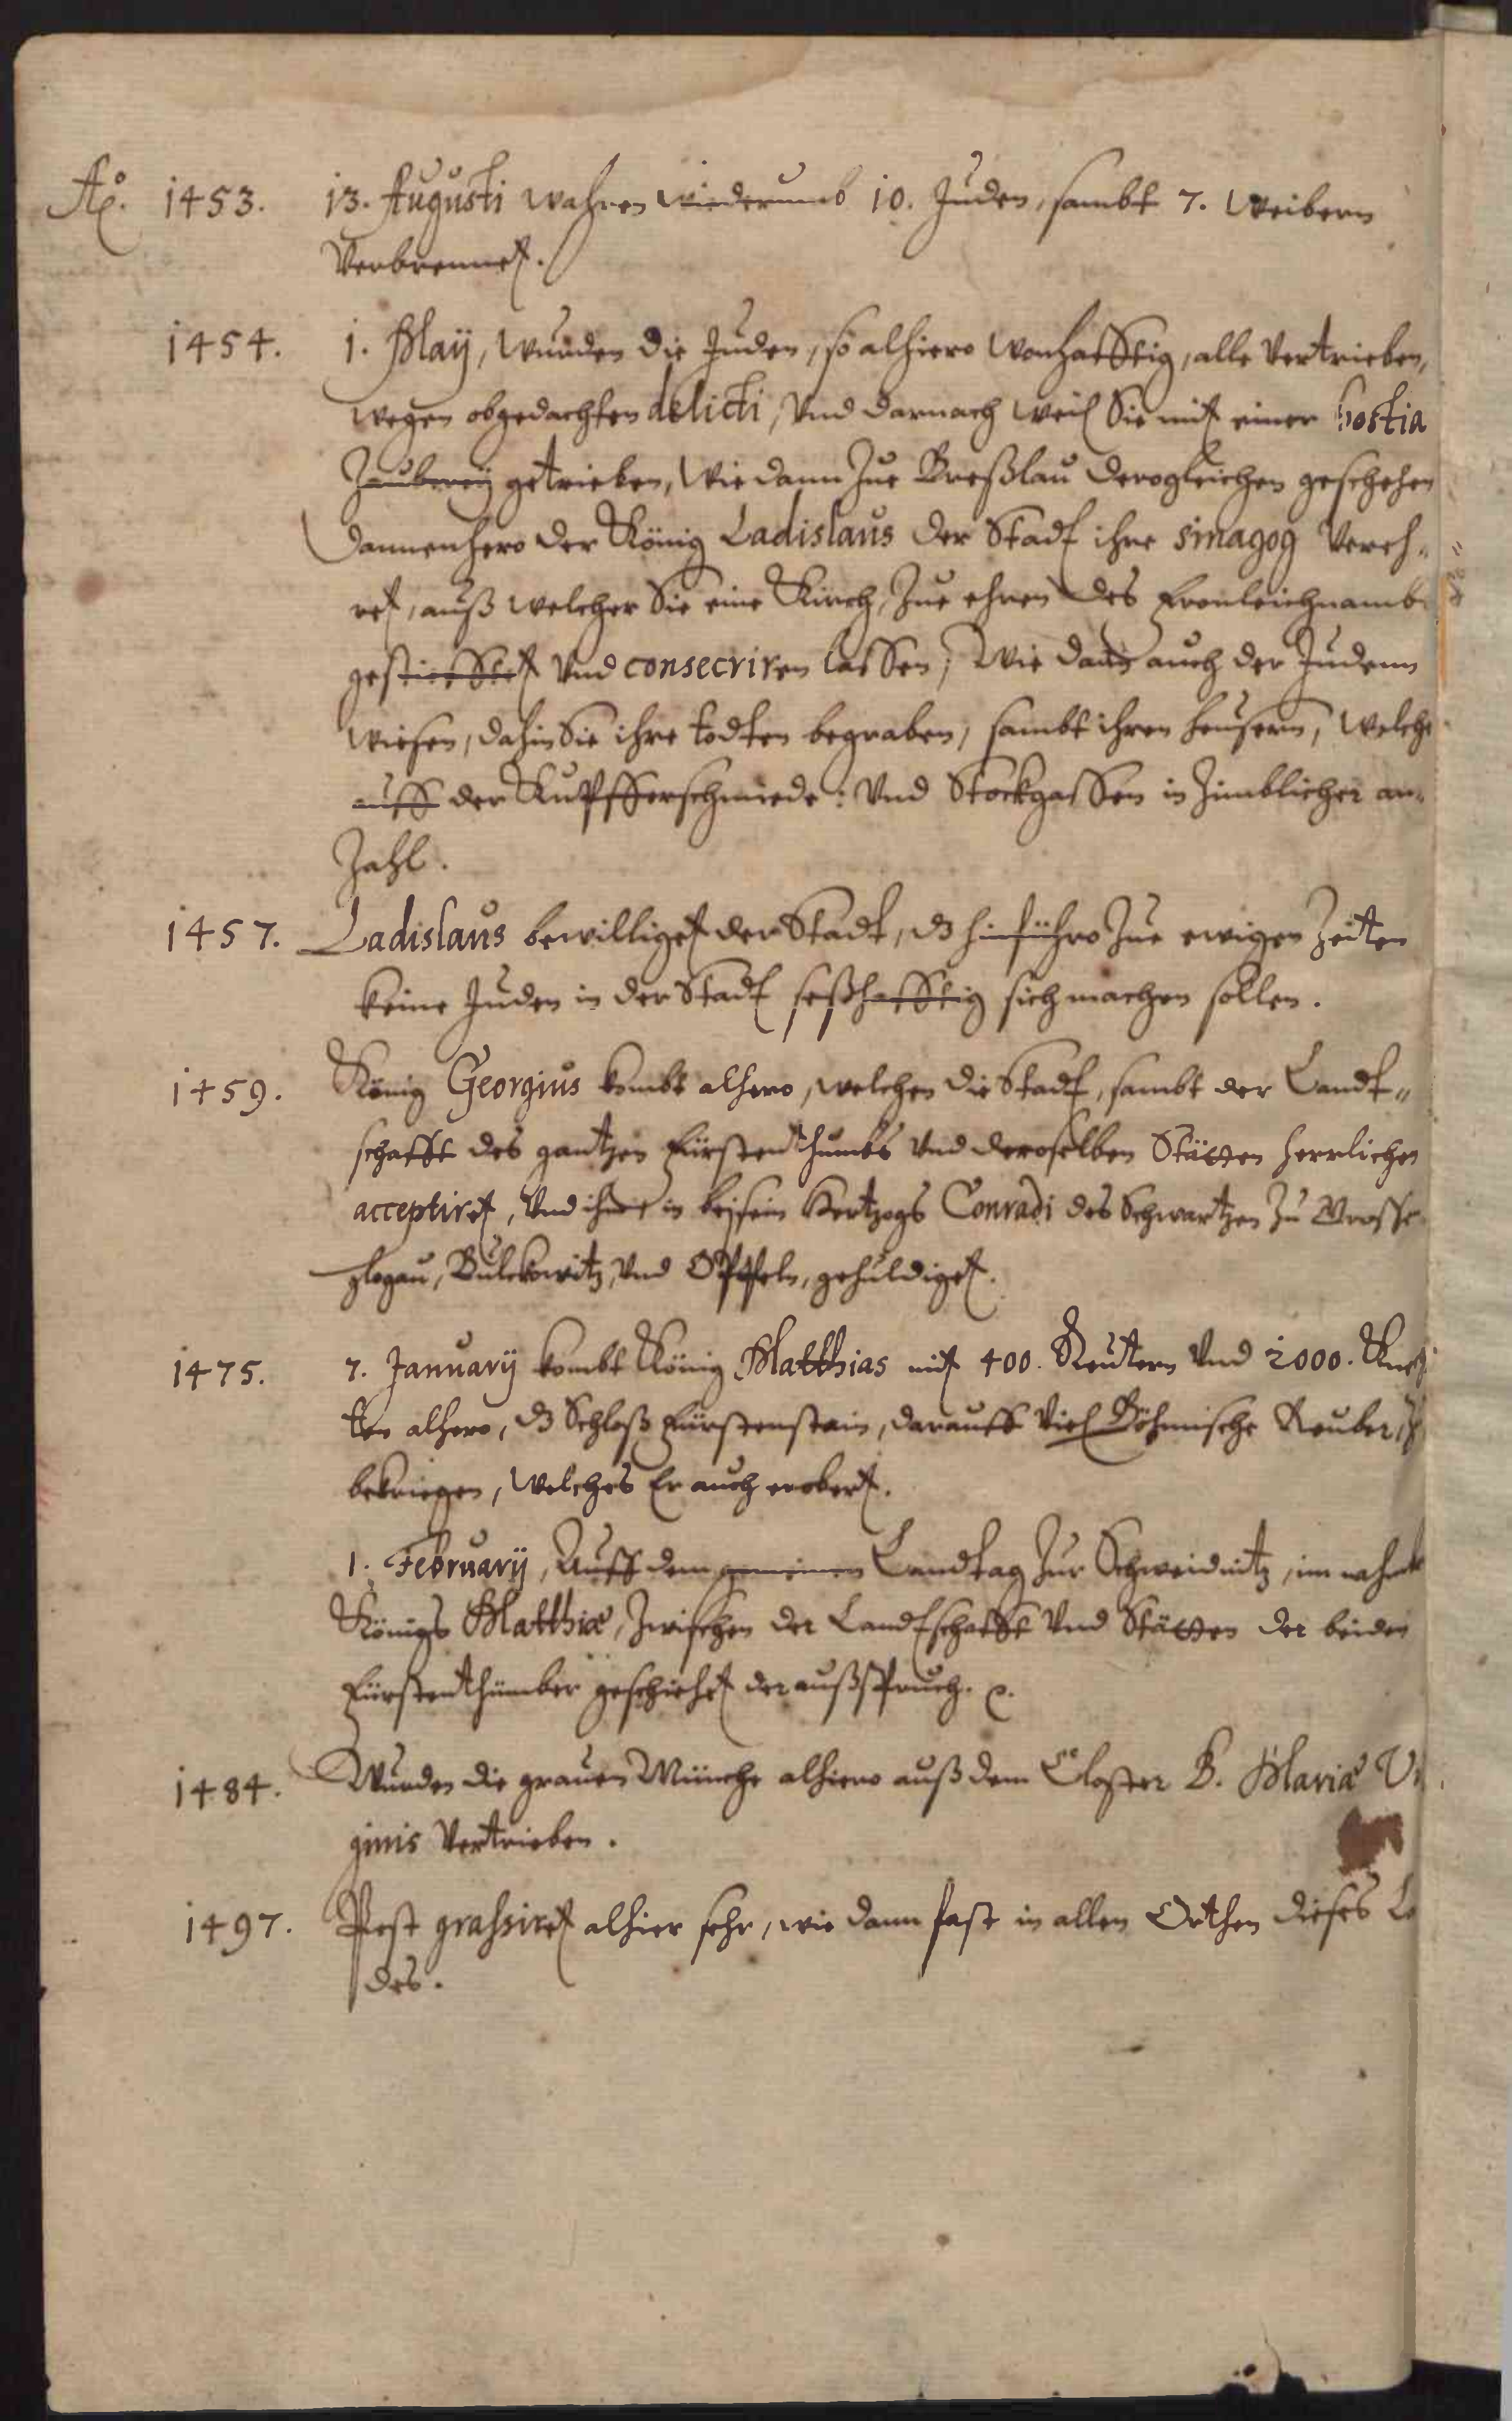 Aō. 1453. 13. Augusti wahren wiederumb 10. Juden, sambt 7. Weibern
Verbrennet.
1454. 1. Maÿ, wurden die Juden, so alhiero wonhafftig, alle Vertrieben,
wegen obgedachten delicti, Vnd darnach weil Sie mit einer hostia
Zauberey getrieben, Wie dann Zue Breßlau derogleichen geschehen
dannenhero der König Ladislaus der Stadt ihre sinagog Vereh-
ret, auß welcher Sie eine Kirch, Zue ehren des Fronleichnamb
gestiefftet Vnd consecriren lassen, Wie dann auch der Judenn
wiesen, dahin Sie ihre todten begraben, sambt ihren heusern, Welche
auff der Kupfferschmiede: Vnd Stockgassen in Zimblicher an-
Zahl.
1457. Ladislaus bewilliget der Stadt, dz hinführo Zue ewigen Zeiten
keine Juden in der Stadt seßhafftig sich machen sollen.
1459. König Georgius kombt alhero, welchen die Stadt, sambt der Landt-
schafft des gantzen Fürstenthumbs Vnd deroselben Stätten herrlichen
acceptiret, Vnd ihme in beisein Hertzogs Conradi des Schwartzen Zu Grosse
glogau, Bulckowitz, Vnd Oppeln, gehuldiget.
1475. 7. Januarÿ kombt König Matthias mit 400. Reutern Vnd 2000. Knech
ten alhero, dz Schloß Fürstenstain, darauff Viel Böhmische Reuber,
bekriegen, Welches Er auch erobert.
1. Februarÿ, Auff dem gemeinen Landtag Zur Schweidnitz, im nahmen
Königs Matthiæ, Zwischen der Landtschafft Vnd Stätten der beiden
Fürstenthümber geschiehet der außspruch. ꝛc.
1484. Wurden die grauen Münche alhiero auß dem Closter B. Mariæ Vi
ginis Vertrieben.
1497. Pest grassiret alhier sehr, wie dann fast in allen Orthen dieses La
des.